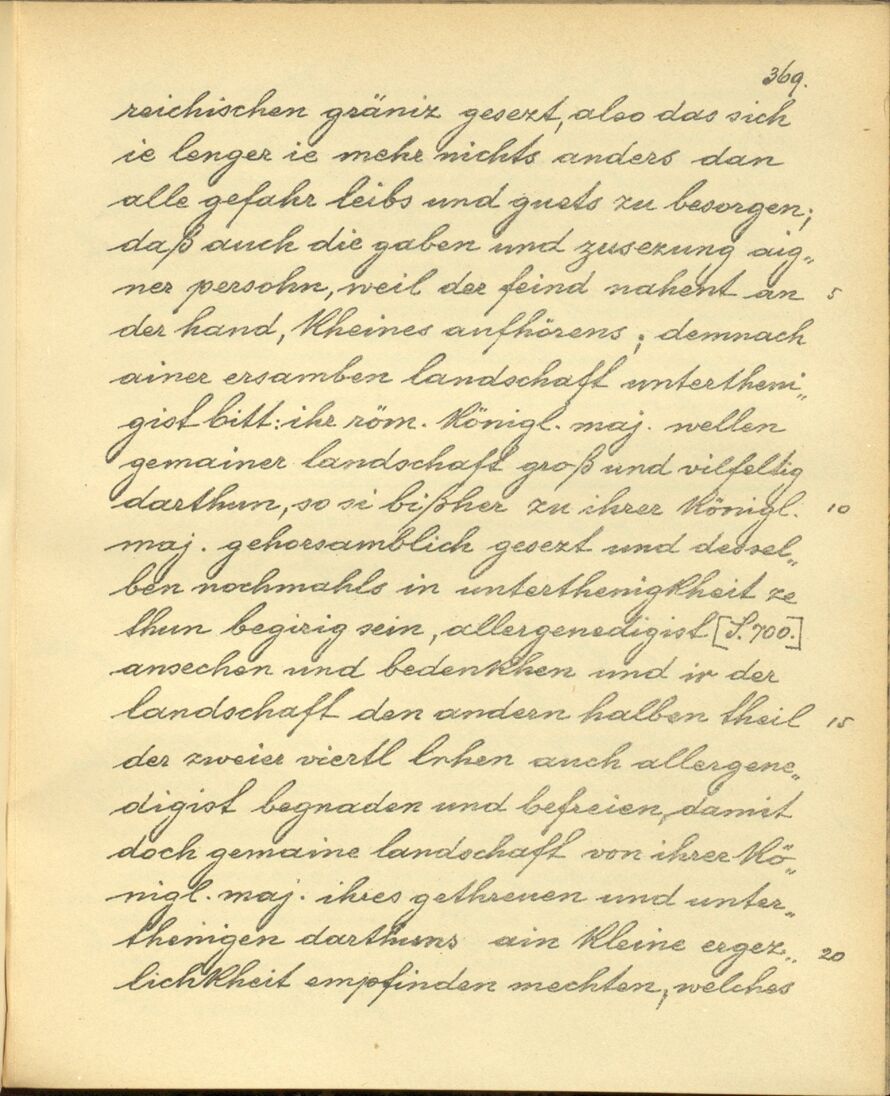 369.
reichischen gräniz gesezt, also das sich
ie lenger ie mehr nichts anders dan
alle gefahr leibs und guets zu besorgen;
daß auch die gaben und zusezung aig„
ner persohn, weil der feind nahent an 5
der hand, kheines aufhörens; demnach
ainer ersamben landschaft untertheni„
gist bitt: ihr röm. königl. maj. wellen
gemainer landschaft groß und vilfeltig
darthun, so si bißher zu ihrer königl. 10
maj. gehorsamblich gesezt und dessel„
ben nochmahls in unterthenigkheit ze
thun begirig sein, allergenedigist [S. 700.]
ansechen und bedenkhen und ir der
landschaft den andern halben theil 15
der zweier viertl lehen auch allergene„
digist begnaden und befreien, damit
doch gemaine landschaft von ihrer kö„
nigl. maj. ihres gethreuen und unter„
thenigen darthuns ain kleine ergez„ 20
lichkheit empfinden mechten, welches